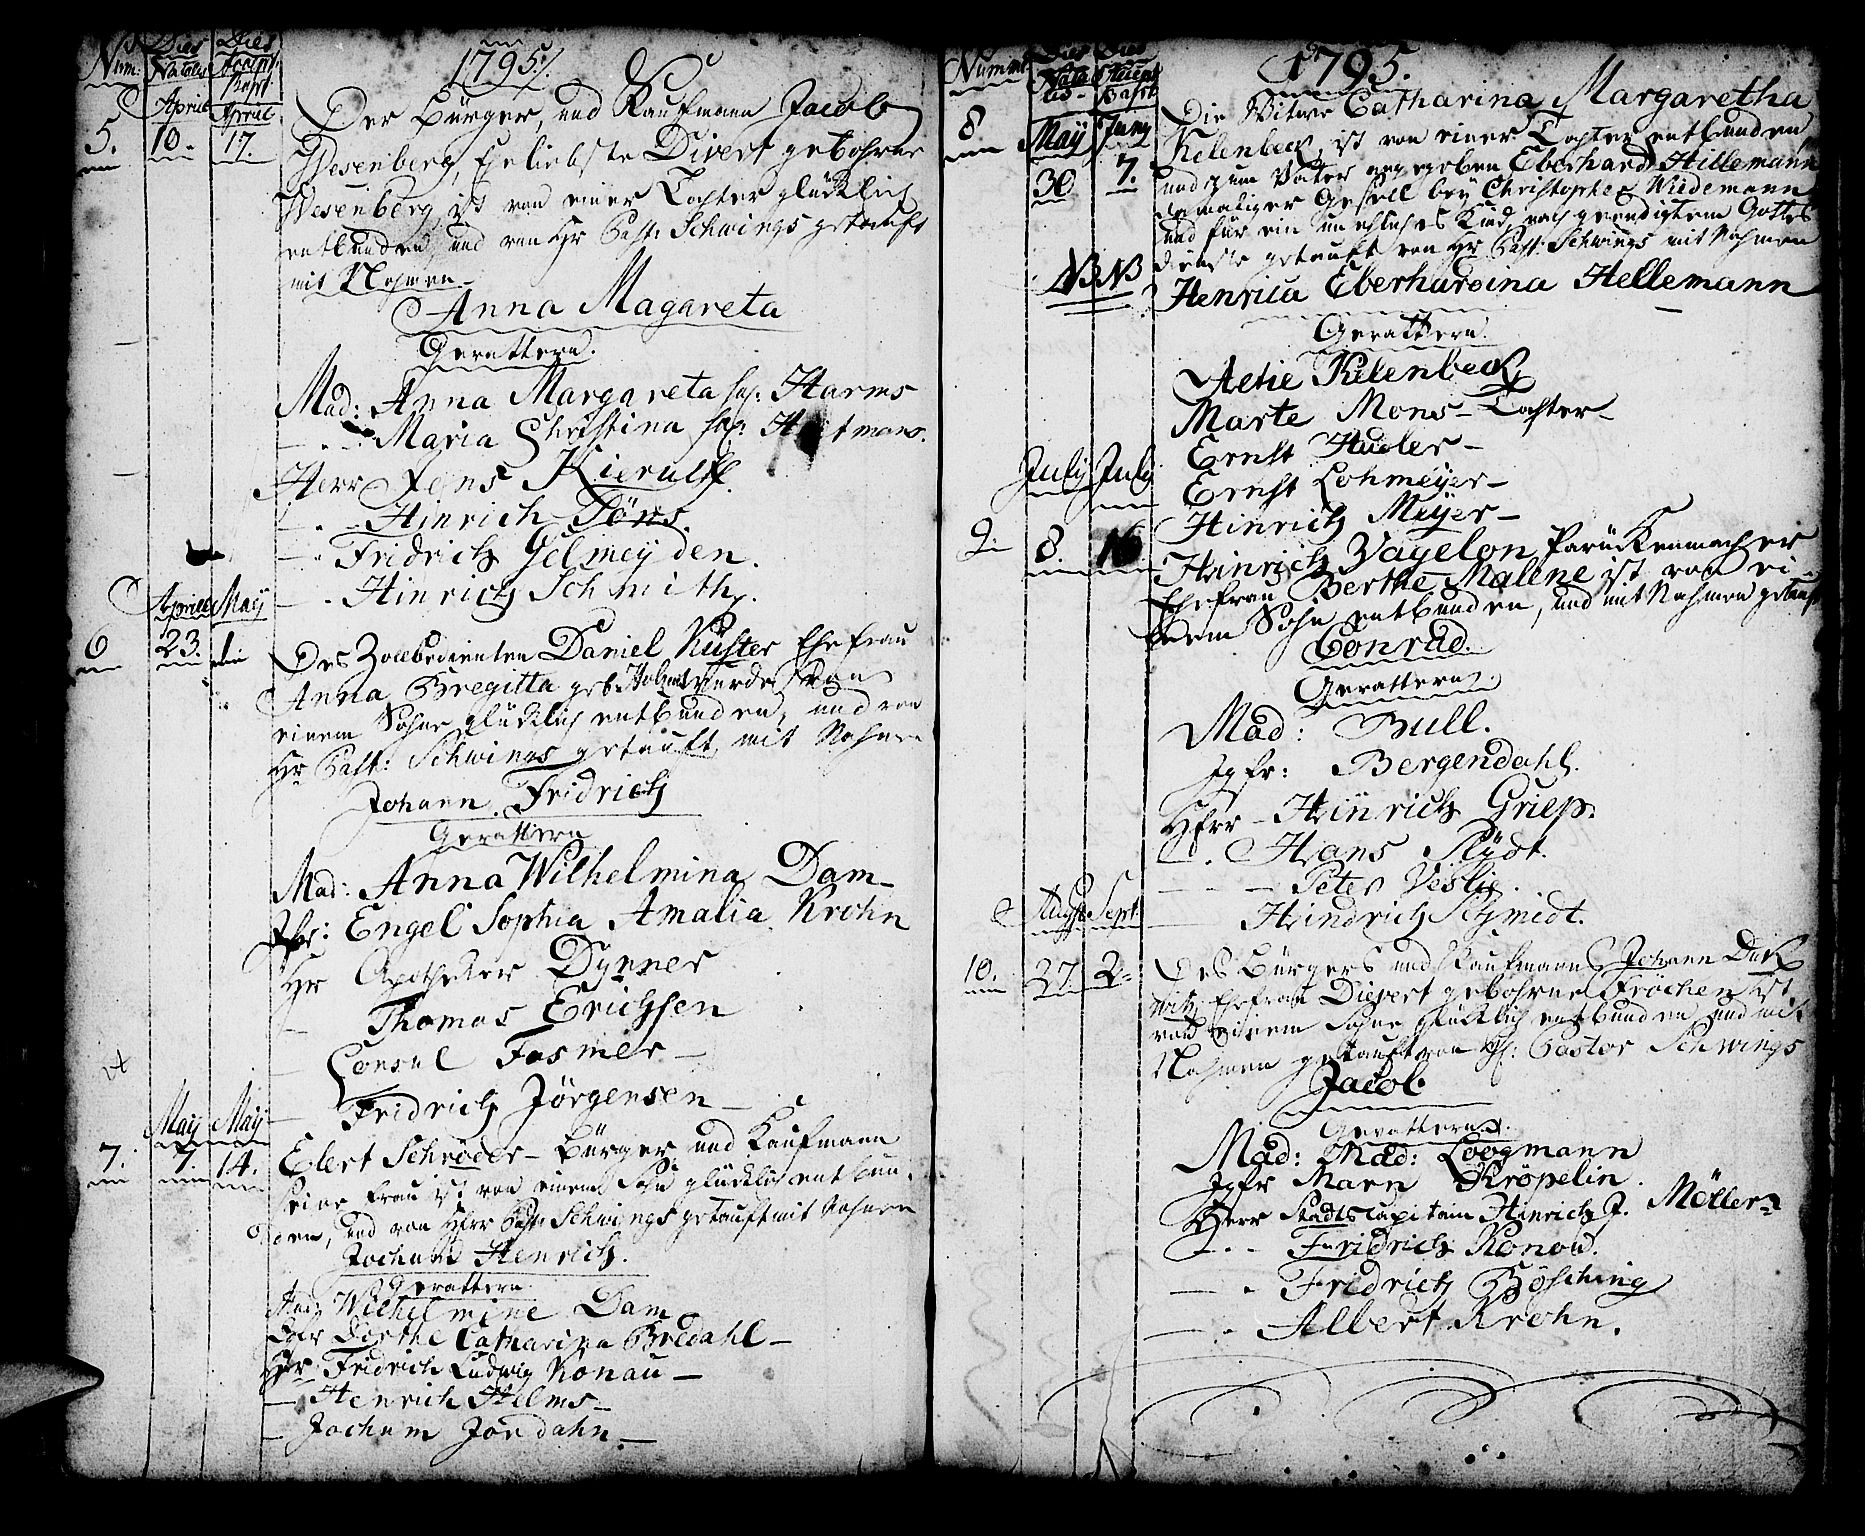 Num: Dies Natalis Dies Accept. Bapt
1795.
April April
5. 10. 17.
Der Bürger, und Kaufmann Jacob
Wesenberg, Eheliebste Divert gebohrne
Wesenberg, ist von einer Tochter glücklich
entbunden und von Hr Past: Schwings getauft
mit Nahmen
Anna Magareta
Gevattern.
Mad: Anna Margareta Harms
Maria Christina
Herr Jens Kierulff.
Hinrich Töns.
Fridrich Gelmeyden.
Hinrich Schmith.
Aprill May
6 23. 1
Des Zollbedienten Daniel Küster Ehefrau
Anna Bregitta geb: wurde von
einem Sohne glücklich entbunden, und von
Hr Past: Schwings getauft, mit Nahmen
Johann Fridrich
Gevattern
Mad: Anna Wilhelmina Dam
Jfr: Engel Sophia Amalia Krohn
Hr Apotheker Dynner
Thomas Erichsen
Consul Fasmer
Fridrich Jörgensen
May May
7. 7. 14.
Elert Schröder Bürger und Kaufmann
seine Frau ist von einem Sohn glücklich entbun
den, und von Hrr Past: Schwings getauft mit Nahmen
Jochum Henrich.
Gevattern
Wilhelmine Dam
Dorthe Catharina Bredahl
Hr Fridrich Ludwig Konau
Henrich Helms
Jochum Jordahn.
Numm: Dies Natalis Dies Accept. Bapt.
1795.
8 May Juny
30 7.
NB NB
Die Witwe Catharina Margaretha
Kelenbeck, ist von einer Tochter entbunden,
und zum Vater angegeben Eberhard Hillemann
damaliger Gesell bey Christopher Wiedemann
und für ein unehliches Kind, nach geendigtem Gottes
dienste getauft von Hr Past: Schwings mit Nahmen
Henrica Eberhardina Hellemann
Gevattern.
Aletie Kelenbeck
Marte Mons Tochter
Ernst Hudler
Ernst Lohmeyer
Hinrich Meyer
July July
9. 8. 16
Heinrich Vagelon Parückenmacher
Ehefrau Berthe Malene ist von ei
nem Sohn entbunden, und mit Nahmen getauft
Conrad.
Gevattern.
Mad: Bull.
Jgfr: Bergendahl.
Hrr Hinrich Griep.
Hans Flydt.
Peter Veslie.
Heindrich Schmedt.
August Sept.
10. 27. 2
Des Bürgers und Kaufmann Johann Dirk
Witz, Ehefrau Dievert gebohrne Fröchen ist
von einem Sohne glücklich entbunden und mit
Nahmen getauft von Hr: Pastor Schwings
Jacob.
Gevattern.
Mad: Mad: Loogmann
Jgfr Maren Kröpelin.
Herr Stadtscapitain Hinrich J. Möller
Fridrich Konow.
Fridrich Bösching
Albert Krohn.